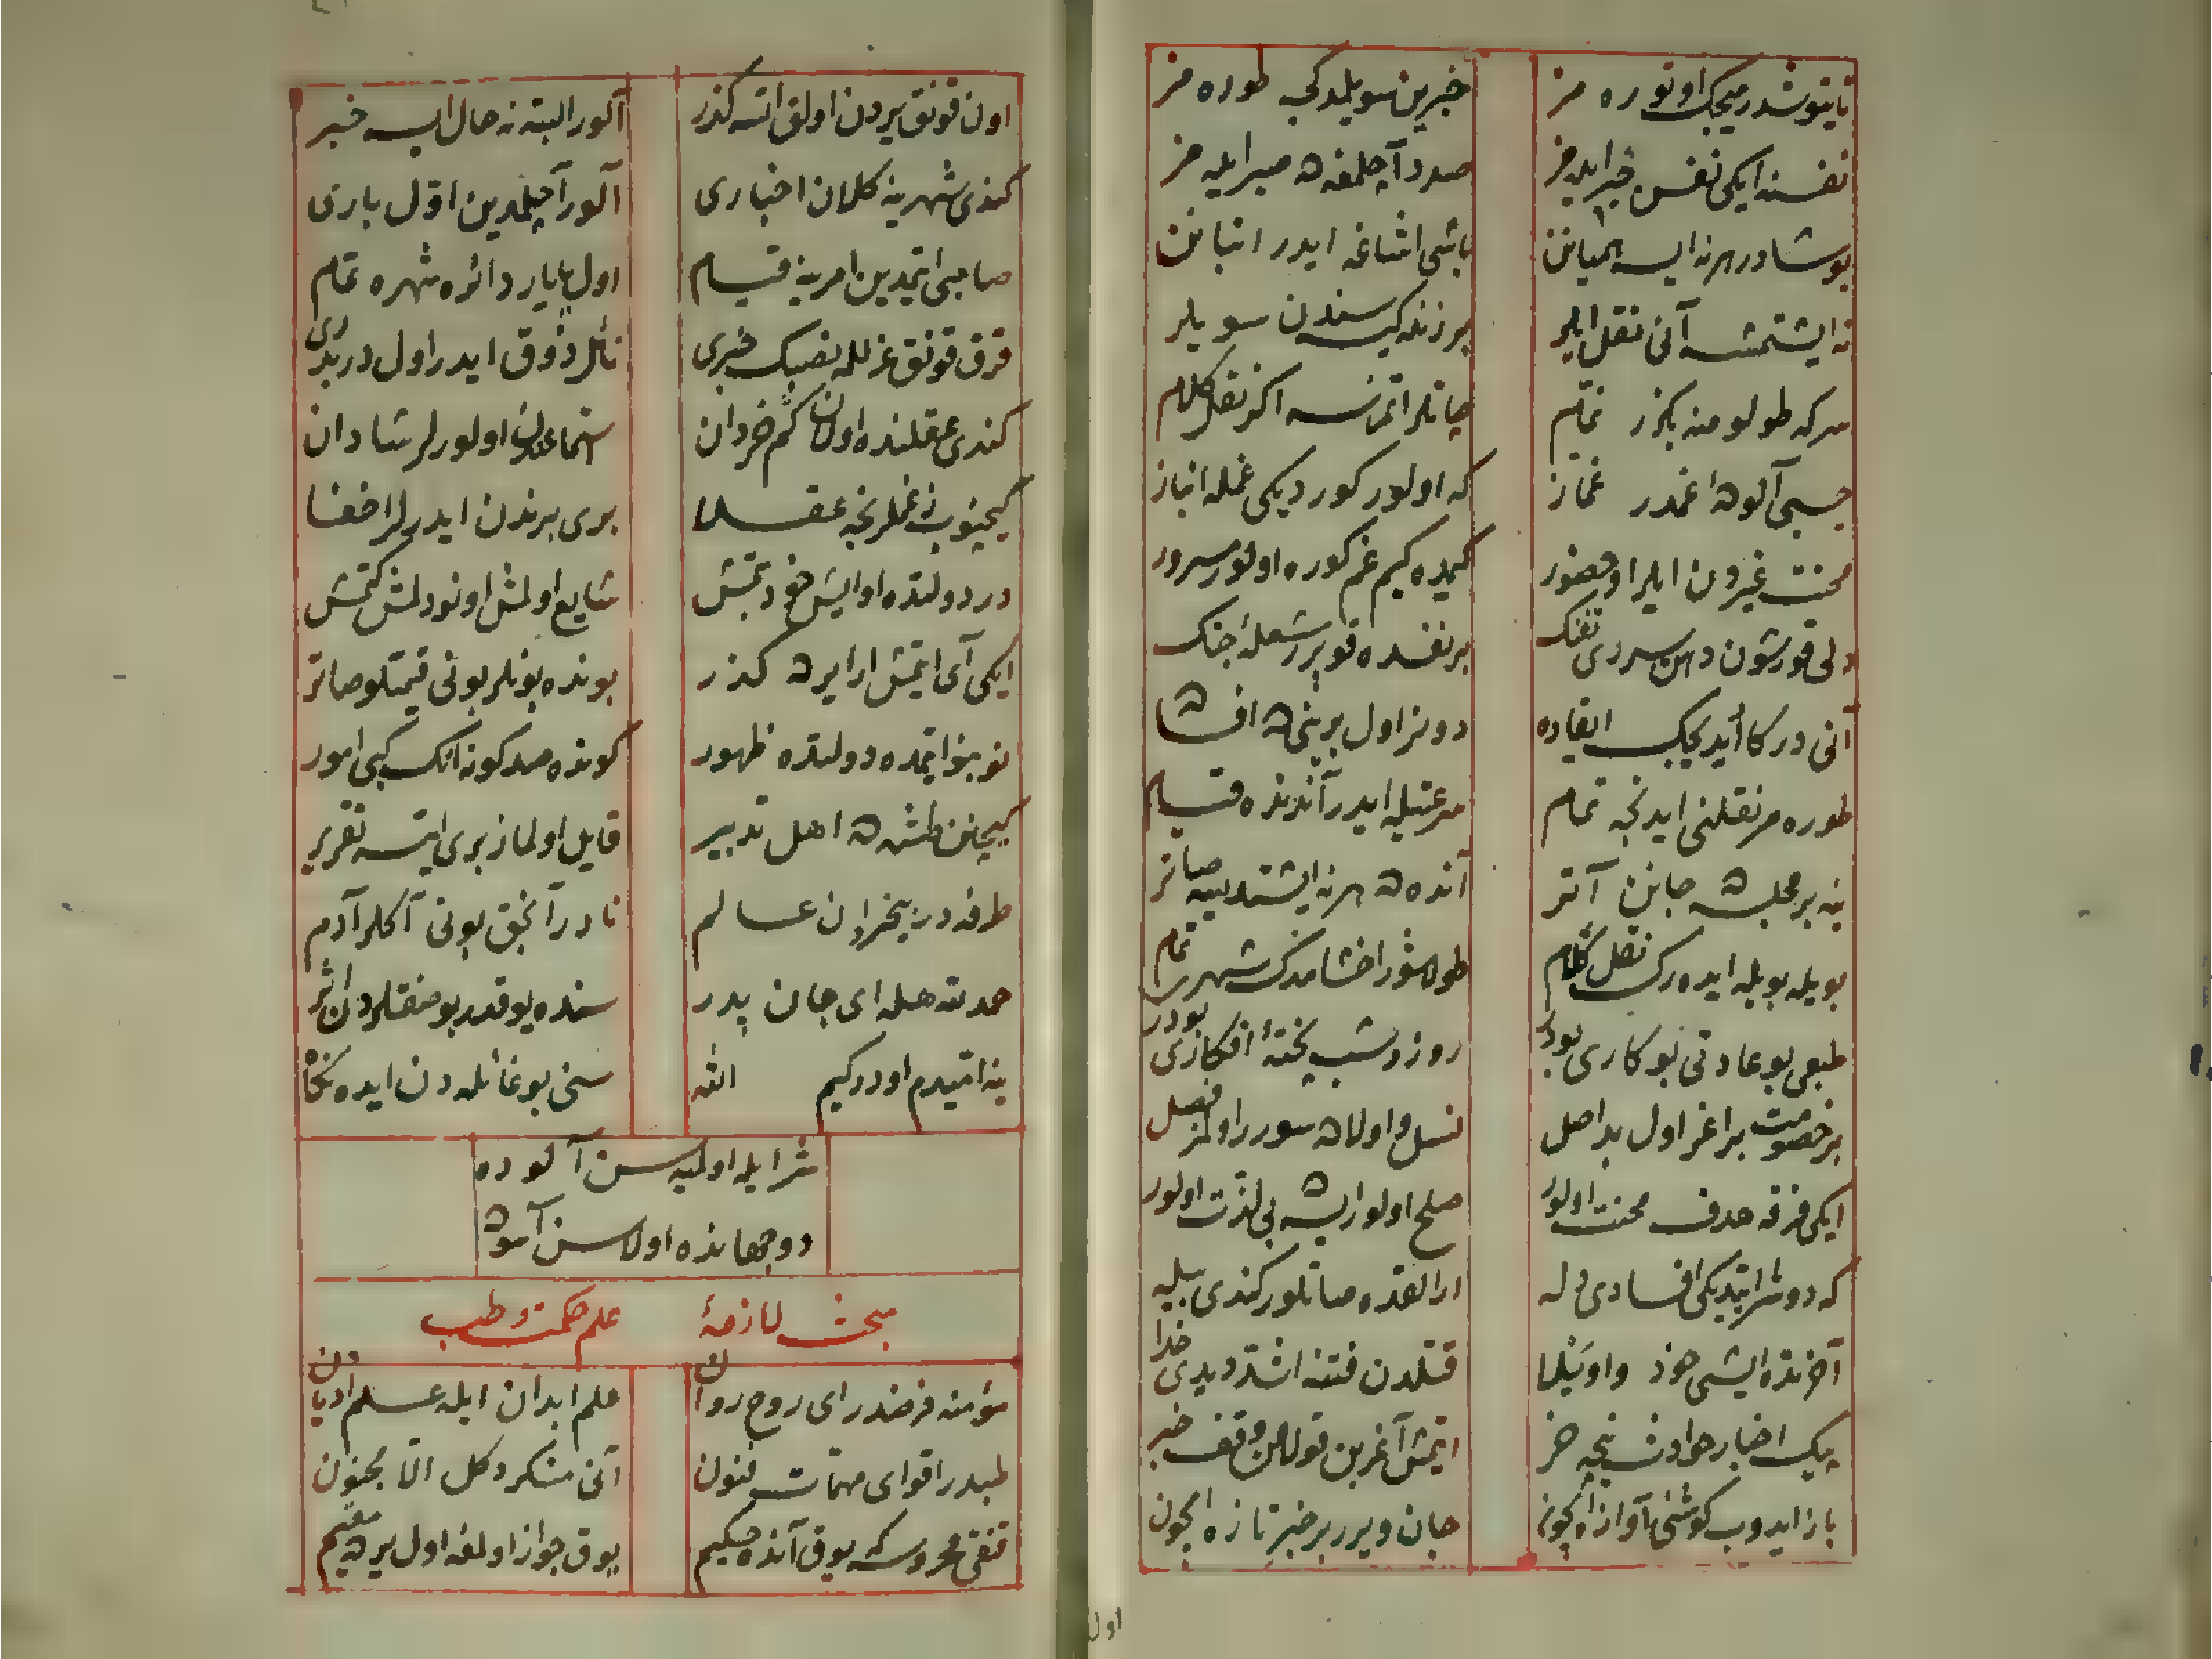 تا يتوشدرميجك اوتوره مز خبرين سويلمدكجه طوره مز
نفسنه ايكى نفس خبر ايده مز صدد آچلمغه ده صبر ايليه مز
بوشادر هر نه ايسه هميانن باشى اشاغه ايدر انبانن
نه ايشتمشسه آنى نقل ايلر بر زنه كيسه سندن سويلر
سركه طولو منه بكزر تمام چاتلر اتمزسه اكر نقل كلام
حسبى آلوده اغمدر غماز كه اولور كورديكى غمله انباز
محنت غيردن ايلر او حضور كيمده كيم غم كوره اولور مسرور
دلى قورشون دهن سردى تفنك بر نفسده قوپرر شعلهٔ جنك
آنى دركا ايديجك القاده دونر اول بر ينى ده افشاده
طوره مز نقلنى ايدنجه تمام سرعتيله ايدر آندنده قيام
ينه بر مجلسه ده جانن آتر آنده ده هر نه ايشتديسه صاتر
بويله بويله ايده رك نقل كلام طولاشور اخشامدك شهرى تمام
طبعى بو عادتى بو كارى بودر روز و شب پختهٔ افكارى بودر
بر خصومت براغر اول بد اصل نسل و اولاده سورر اولمز فصل
ايكى فرقه هدف محنت اولور صلح اولورايسه ده بى لذت اولور
كه دوشر ايتديكى افسادى دله ارالقده صاتلور كندى بيله
آخرنده ايشى خود واويلا قتلدن فتنه اشددر ديدى خدا
پيك اخبار حوادث نيجه خر ايتمش آغزين قولاغن وقف خبر
باز ايدوب كوشنى آوازه ايچون جان ويرر بر خبر تازه ايچون
اول
اون قونق يردن اولق اتسه كذر آلور البته نه حال ايسه خبر
كندى شهرينه كلان اخبارى آلور آچلمدين اول بارى
صاحبى ايتمدين امرينه قيام اول ياپار دائره شهره تمام
قرق قونق عزل له نصبك خبرى نائل ذوق ايدر اول دربدرى
كندى عقلنده اولان كم خردان استماعندن اولورلر شادان
كيچنوب زعملرنجه عقلا برى برندن ايدرلر اخفا
در دولتده او ايش خود بتمش شايع اولمش اونودلمش كتمش
ايكى آى ايتمش ارايرده كذر بونده بونلر بونى قيمتلو صاتر
نو بنو ايتمده دولتده ظهور كونده صد كونه انك كبى امور
كيجانن طشره ده اهل تدبير قايل اولماز برى ايتسه تقرير
طرفه در بيخردان عالم نادر آنجق بونى آكلر آدم
حمد لله هله اى جان پدر سنده يوقدر بو صفتلردن اثر
ينه اميدم اودركيم الله سنى بو غائله دن ايده نكاه
شر ايله اولميه سن آلوده
دو جهانده اولاسن آسوده
مبحث لازمهٔ علم حكمت و طب
مؤمنه فرضدر اى روح روان علم ابدان ايله علم اديان
طبدر اقواى مهمات فنون آنى منكر دكل الا مجنون
تنغى محروسه كه يوق آنده حكيم يوق جواز اولمغه اول يرده مقيم